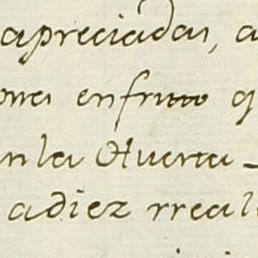 apreciadas, a
enfruto q
en la Huerta
a diez rreal